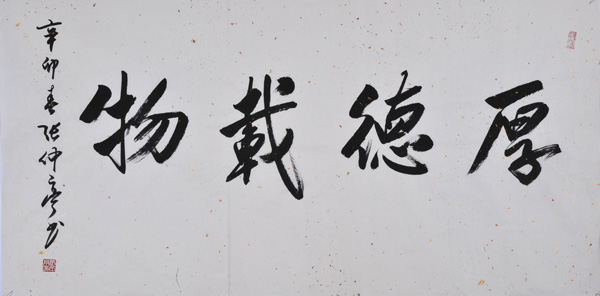 厚德載物
辛卯春張仲亭书